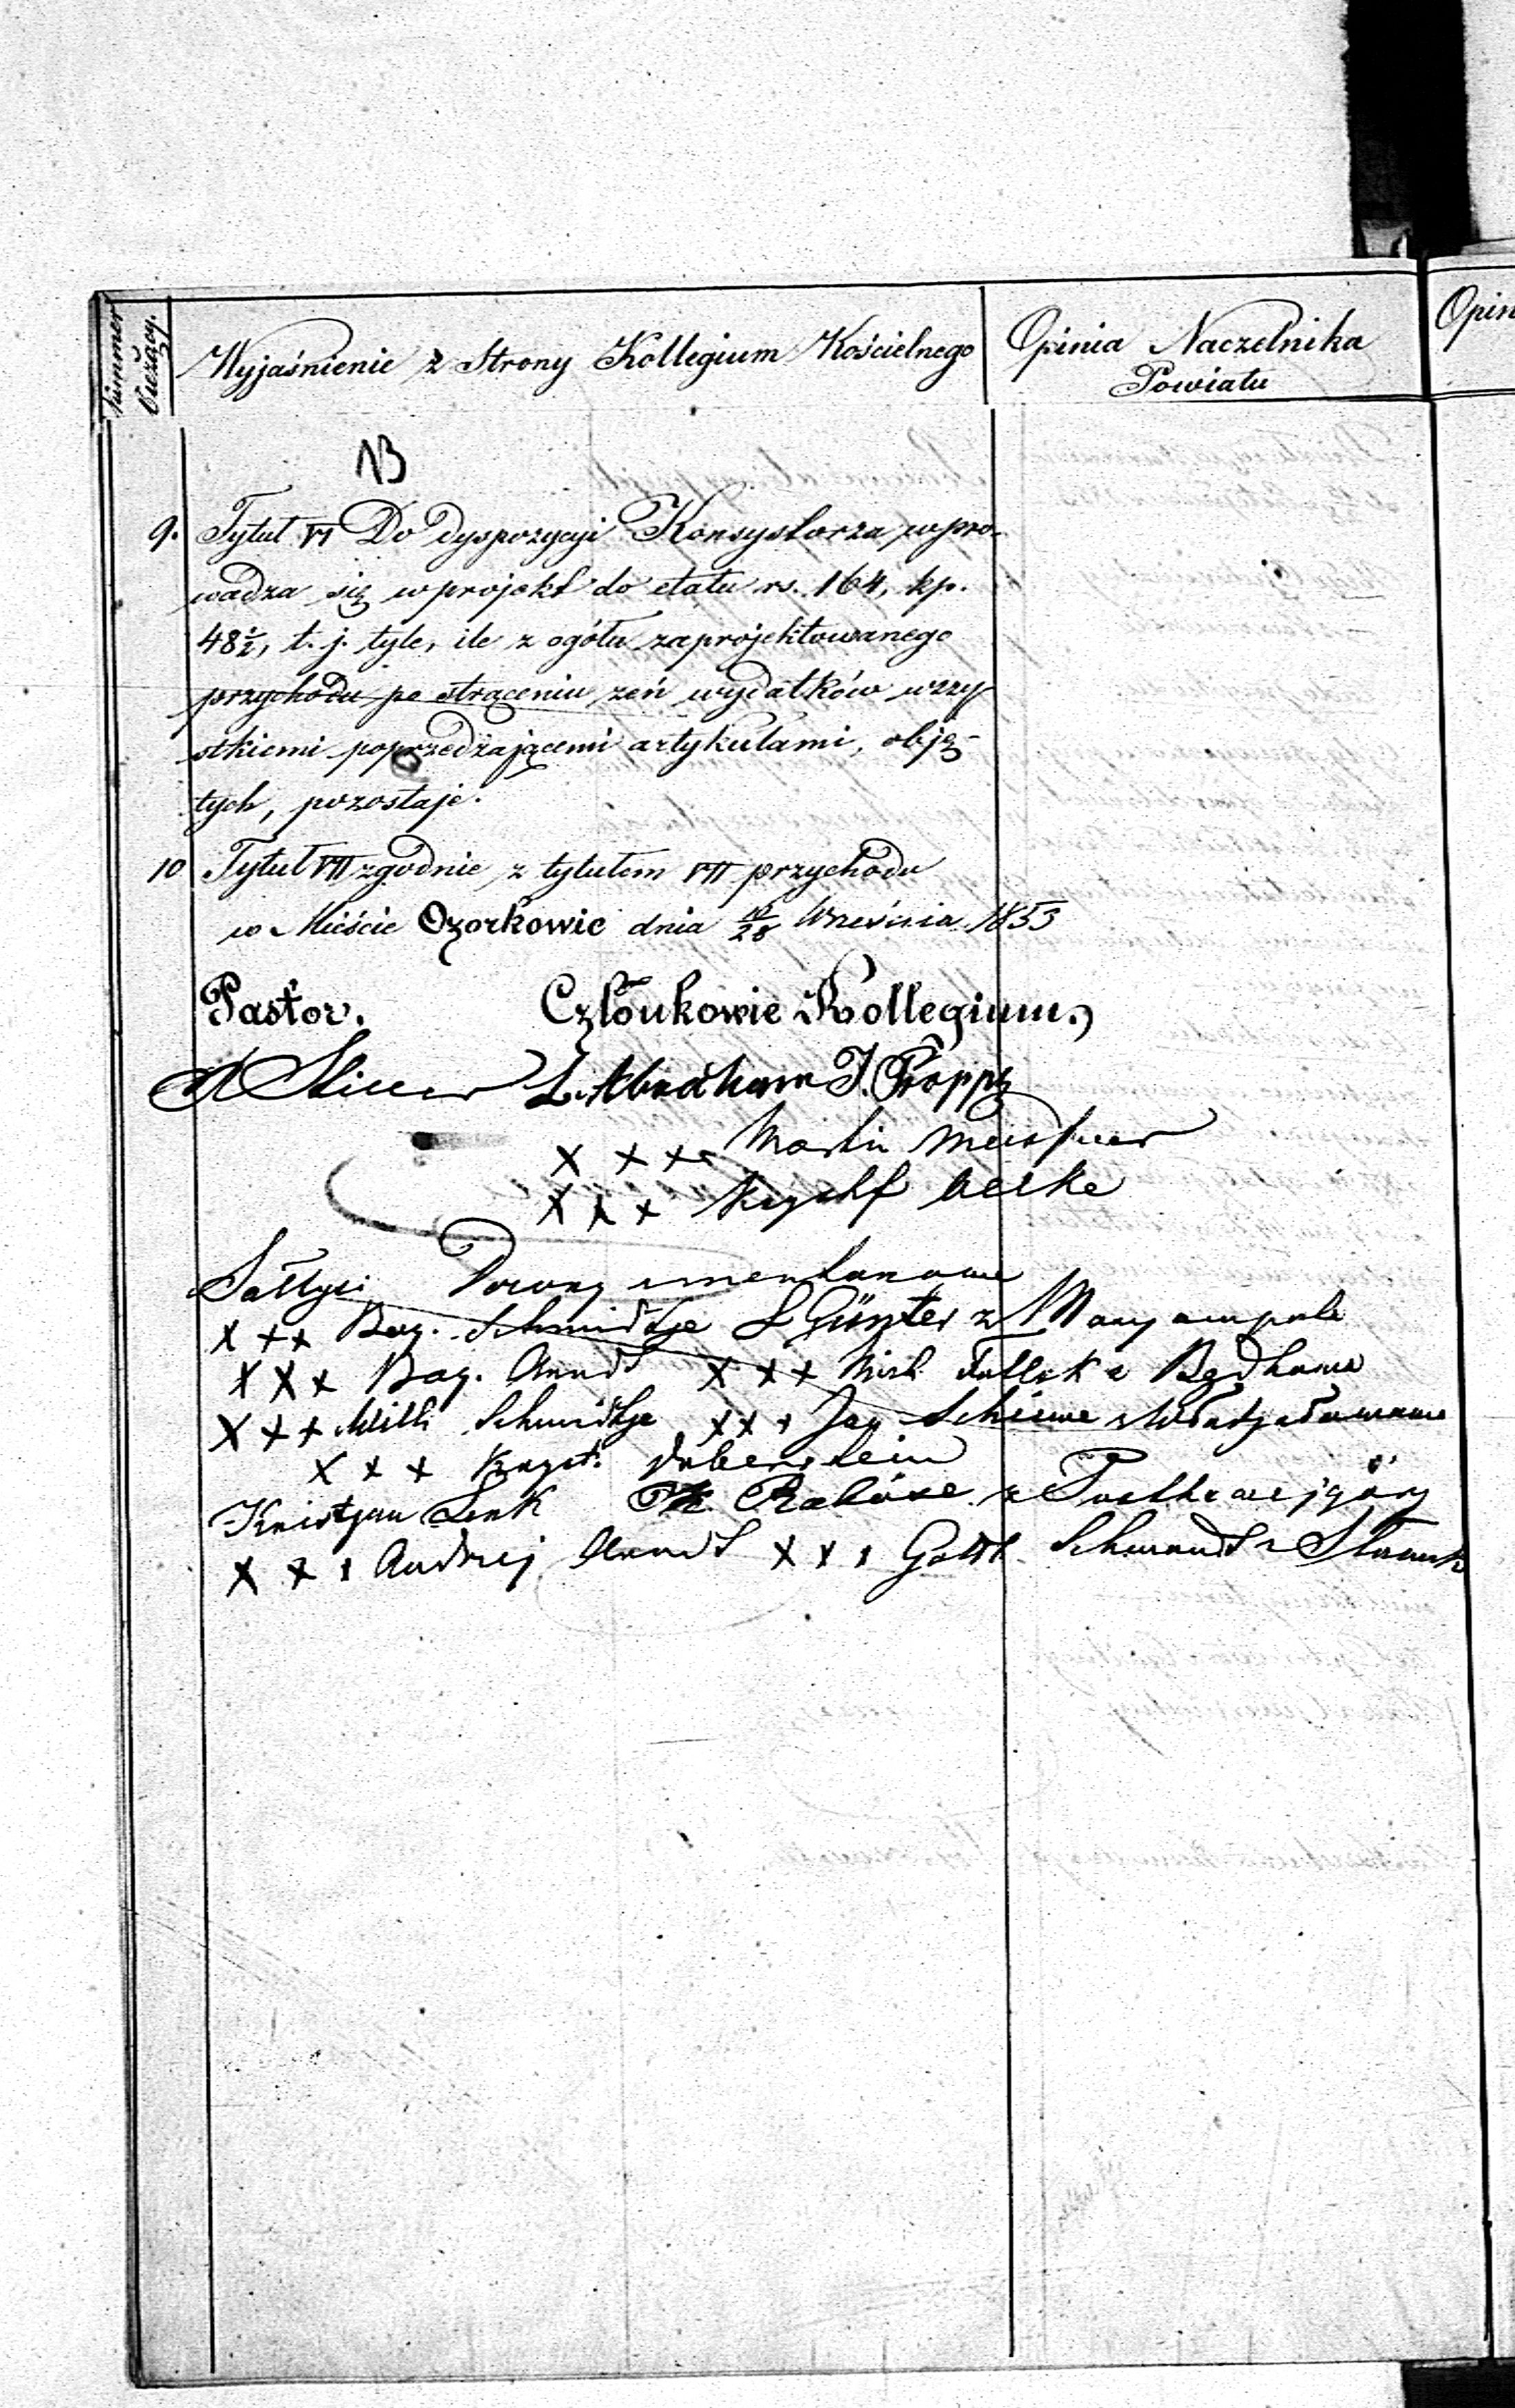 Numer bieżący.
Wyjaśnienie z Strony Kollegium Kościelnego
Opinia Naczelnika
Powiatu
Opin
NB
9. Tytuł VI Do dyspozycyi Konsystorza wpro-
wadza się w projekt do etatu rs. 164, kp.
48½, t. j. tyle, ile z ogółu zaprojektowanego
przychodu po strąceniu zeń wydatków wszy
stkiemi poprzedzającemi artykułami, obję-
tych, pozostaje.
10 Tytuł VII zgodnie z tytułem VII przychodu
w Mieście Ozorkowie dnia 28 Września 1853
Pastor. Członkowie Kollegium.
L. Abraham J. Propp
X X X Martin Meissner
X X X
Sołtysi
X X X Bog. Schmidtje L Günter z Maryampola
X X X Bog. Arndt X X X Mich.
X X X Willh Schmidtje X X X Jan
X X X Kryst. Daberstein
Kristjan Lenk
X X X Andrzej Arndt X X X Gottl. Schmandt